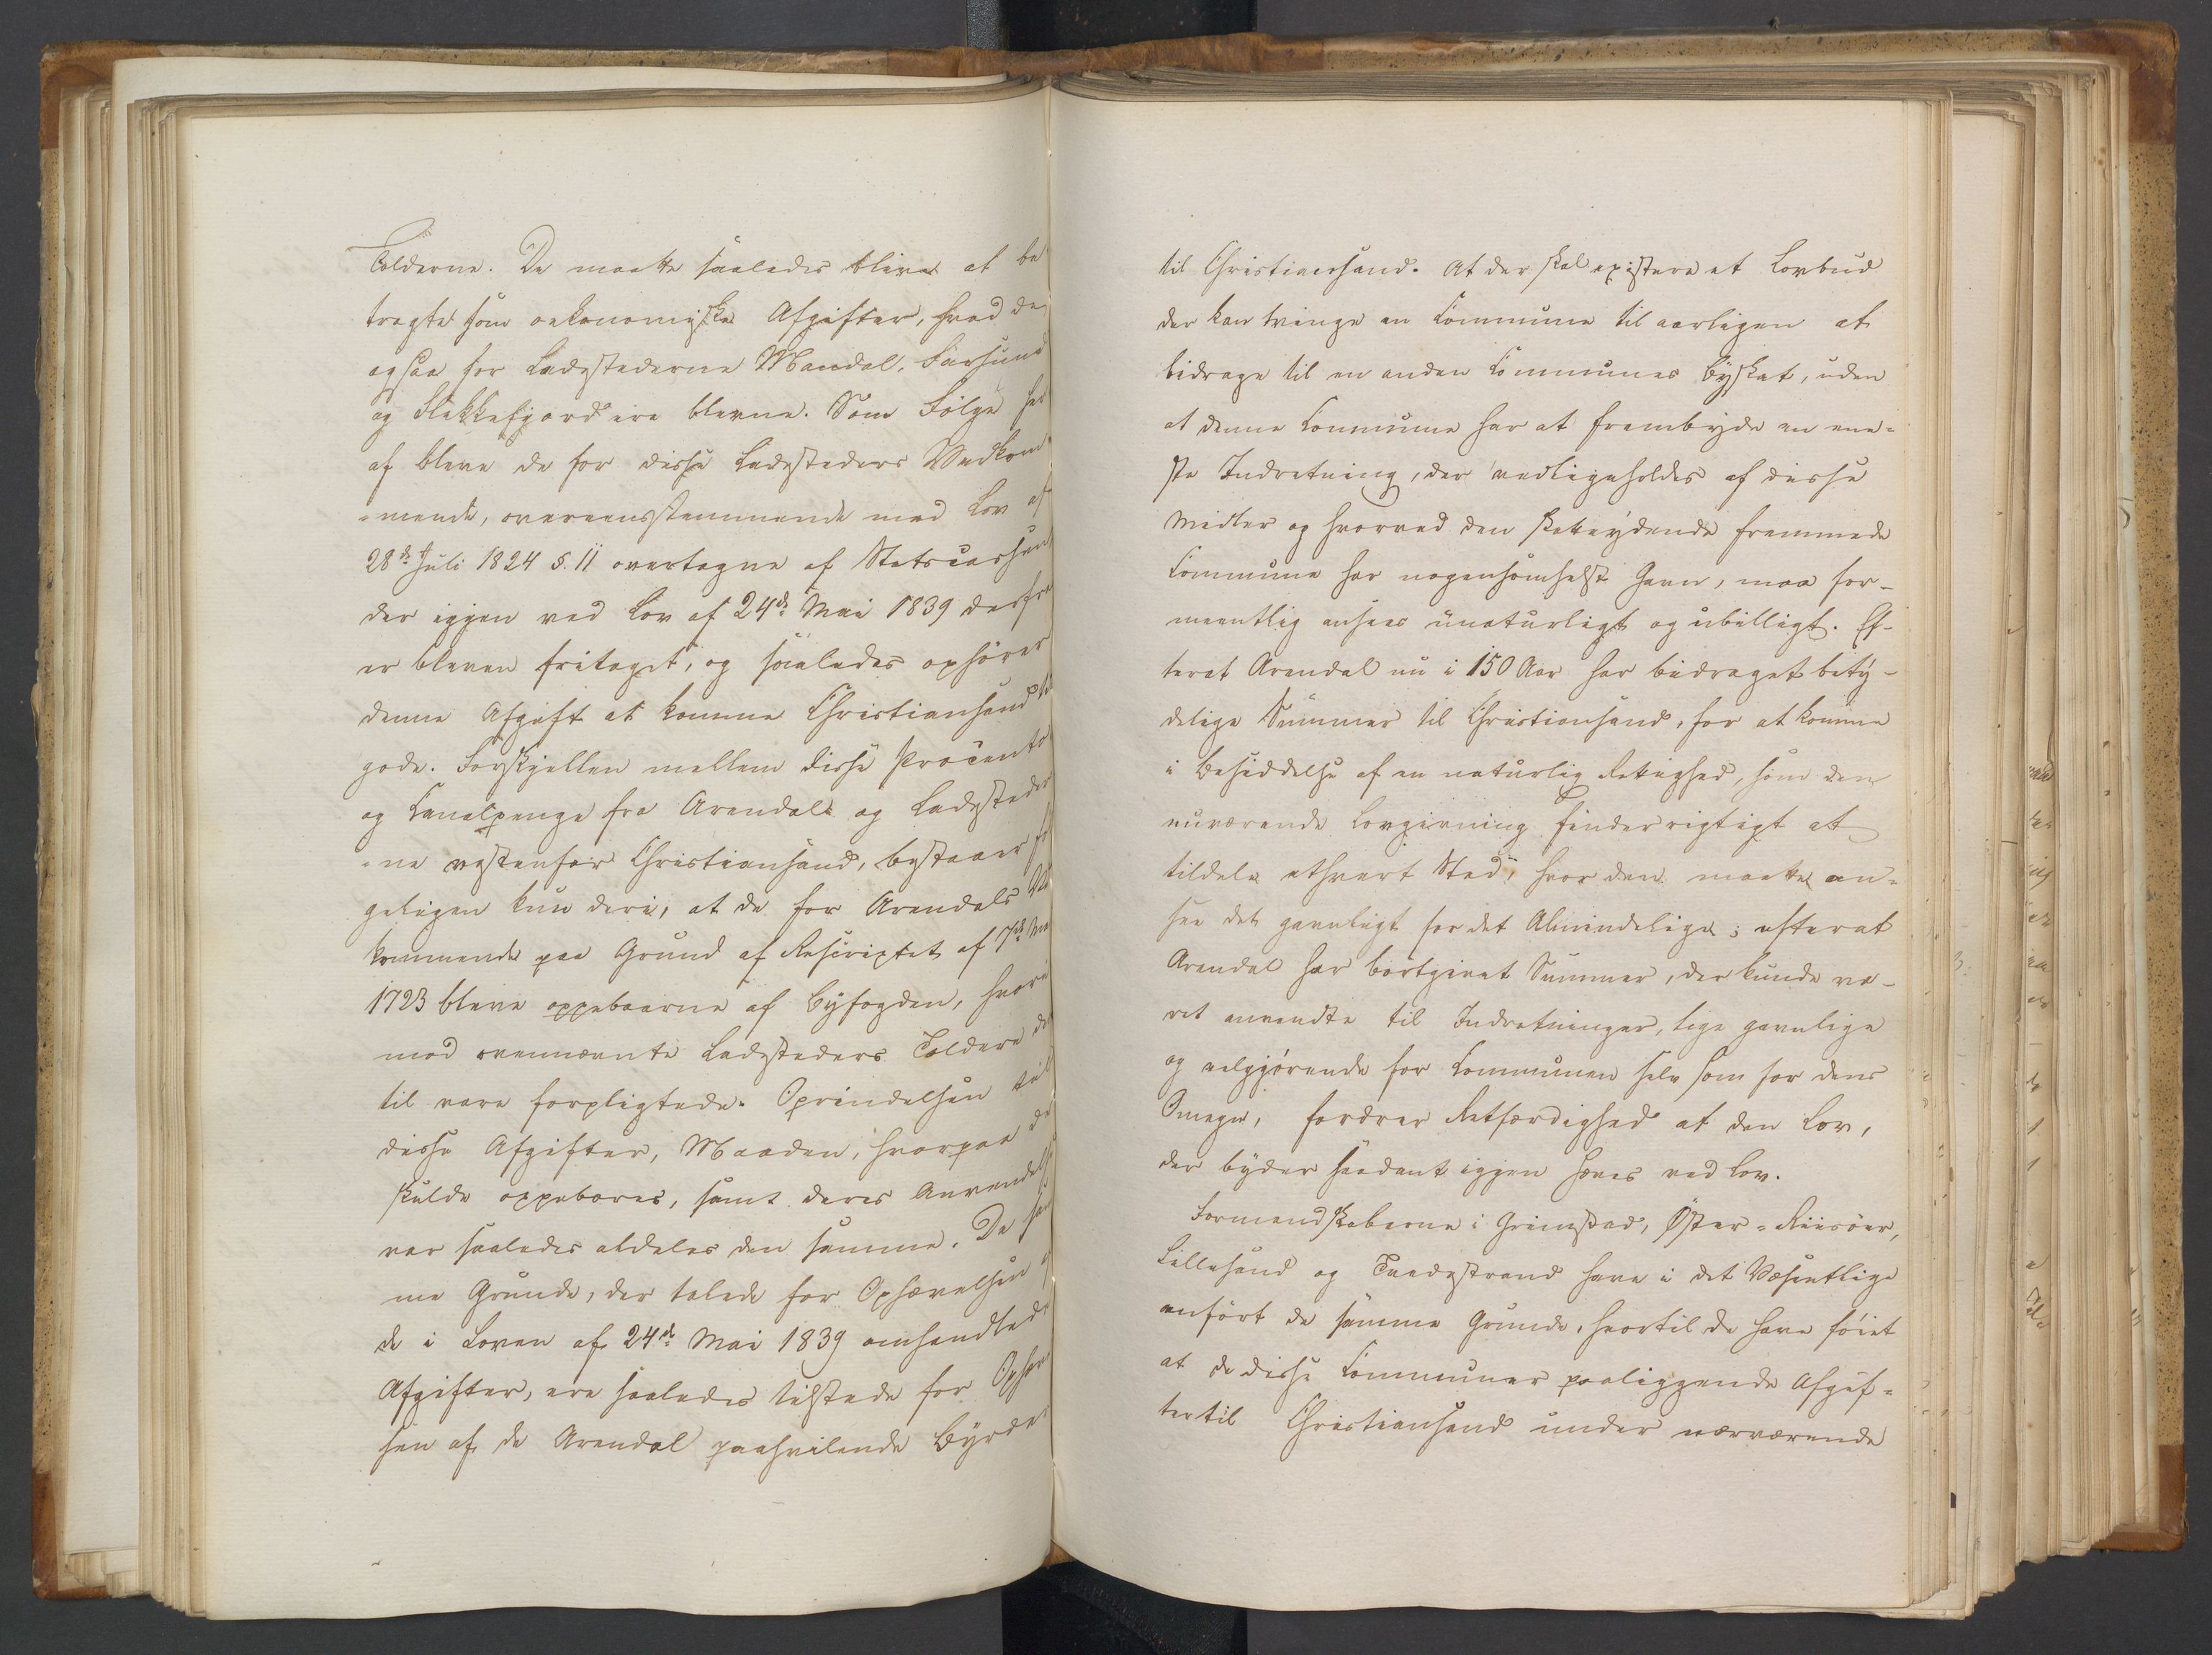 Tolderne. De maatte saaledes blive at be
tragte som oekonomiske Afgifter, hvad de
ogsaa for Ladestederne Mandal, Farsund
og Flekkefjord ere blevne. Som Følge her
af bleve de for disse Ladesteders Vedkom
-mende, overeensstemmende med Lov af
28de Juli 1824 §. 11 overtagne af Statscassen
der igjen ved Lov af 24de Mai 1839 derfra
er bleven fritaget, og saaledes ophører
denne Afgift at komme Christiansand til
gode. Forskjellen mellem disse Procento
og Canalpenge fra Arendal og Ladestede
-ne vestenfor Christiansand, bestaaer føl
geligen kun deri, at de for Arendals Ved
kommende paa Grund af Rescriptet af 7de Mai
1723 bleve oppebaarne af Byfogden, hvori
mod ovennævnte Ladesteders Toldere der
til vare forpligtede. Oprindelsen til
disse Afgifter, Maaden, hvorpaa de
skulde oppebæres, samt deres Anvendelse
var saaledes aldeles den samme. De sam
me Grunde, der talede for Ophævelsen af
de i Loven af 24de Mai 1839 omhandlede
Afgifter, ere saaledes tilstede for Ophævel
sen af de Arendal paahvilende Byrder
til Christiansand. At der skal existere et Lovbud
der kan tvinge en Commune til aarligen at
bidrage til en anden Communes Byskat, uden
at denne Commune har at frembyde en ene-
ste Indretning, der vedligeholdes af disse
Midler og hvorved den skatteydende fremmede
Commune har nogensomhelst Gavn, maa for-
meentlig ansees unaturligt og ubilligt. Ef-
terat Arendal nu i 150 Aar har bidraget bety-
delige Summer til Christiansand, for at komme
i Besiddelse af en naturlig Rettighed, som den
nuværende Lovgivning finder rigtigt at
tildele ethvert Sted, hvor den maatte an-
see det gavnligt for det Almindelige; efterat
Arendal har bortgivet Summer, der kunde væ-
ret anvendte til Indretninger, lige gavnlige
og velgjørende for Communen selv som for dens
Omegn, fordrer Retfærdighed at den Lov,
der byder saadant igjen hæves ved Lov.
Formandskaberne i Grimstad, Øster-Riisøer,
Lillesand og Tvedestrand have i det Væsentlige
anført de samme Grunde, hvortil de have føiet
at de disse Communer paaliggende Afgif-
ter til Christiansand under nærværende